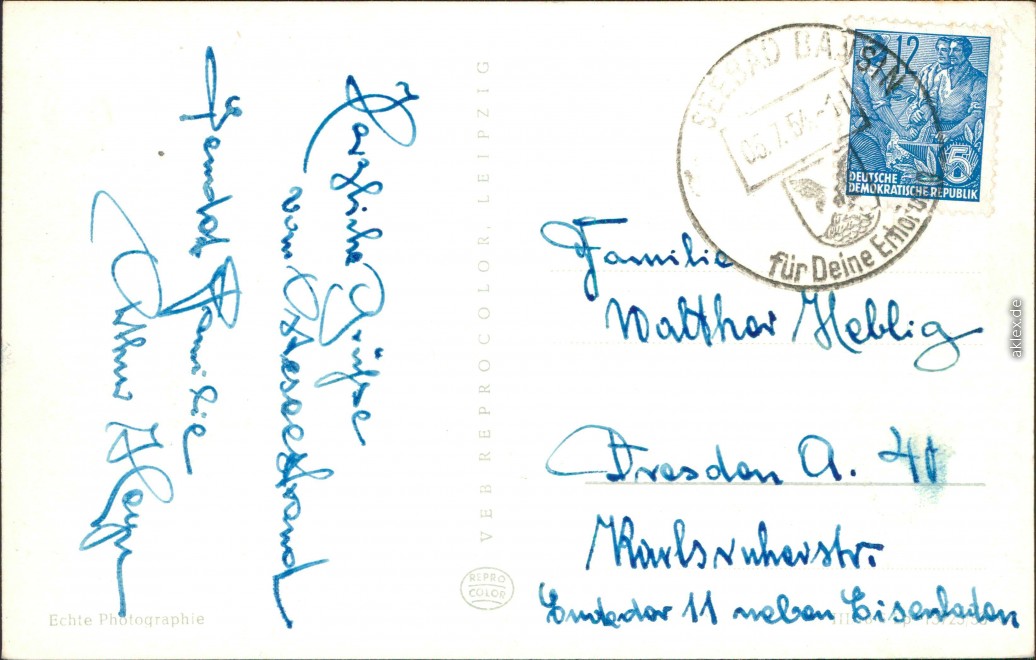 Herzliche Grüße
vom Ostseestrand
sendet Familie
Arthur
VEB REPROCOLOR, LEIPZIG
REPRO
COLOR
Echte Photographie
SEEBAD BANSIN
05.7.54.-11
für Deine Erholung
12
5
DEUTSCHE
DEMOKRATISCHE REPUBLIK
Familie
Walther Heblig
Dresden A. 40
Karlsruherstr.
Endedor 11 neben Eisenladen
aklex.de